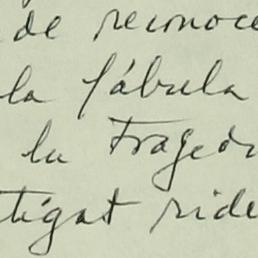 de reconoce
la fábula
la Traged
tigat ride